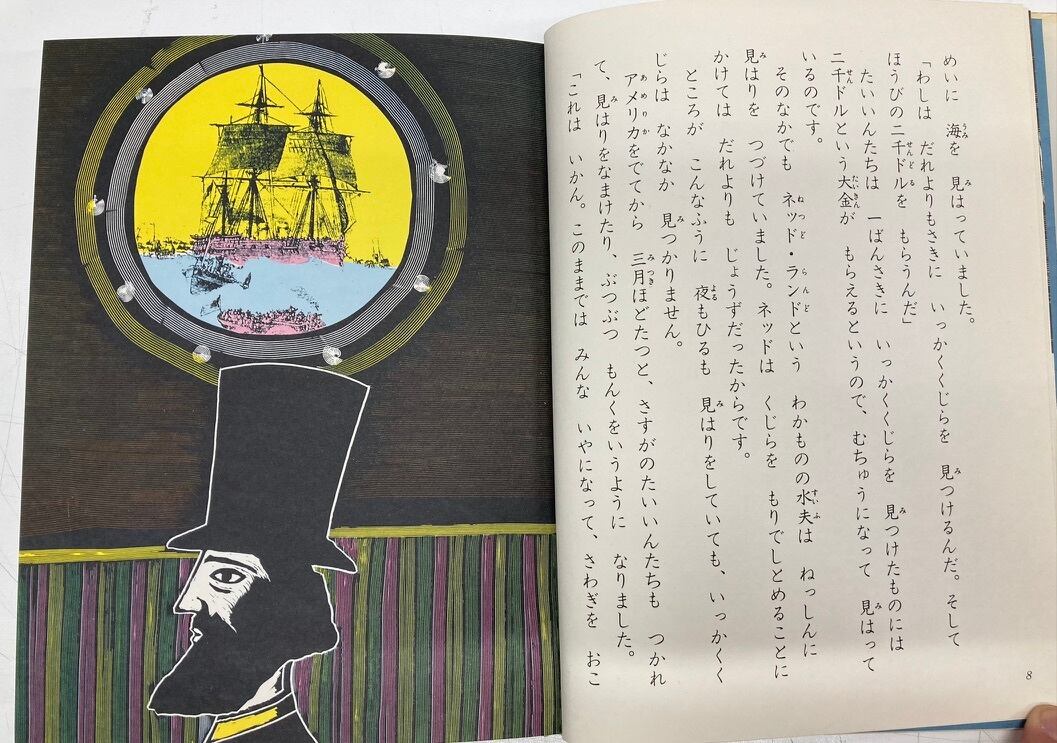 めいに 海を 見はっていました。
「わしは だれよりもさきに いっかくくじらを 見つけるんだ。そして
ほうびの 二千ドルを もらうんだ」
たいいんたちは 一ばんさきに いっかくくじらを 見つけたものには
二千ドルという 大金が もらえるというので、むちゅうになって 見はって
いるのです。
そのなかでも ネッド・ランドという わかものの 水夫は ねっしんに
見はりを つづけていました。ネッドは くじらを もりでしとめることに
かけては だれよりも じょうずだったからです。
ところが こんなふうに 夜もひるも 見はりをしていても、いっかくく
じらは なかなか 見つかりません。
アメリカをでてから 三月ほどたつと、さすがのたいいんたちも つかれ
て、見はりをなまけたり、ぶつぶつ もんくをいうように なりました。
「これは いかん。このままでは みんな いやになって、さわぎを おこ
8